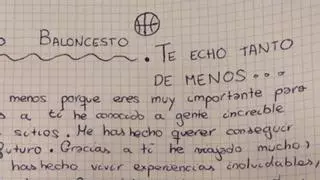 O BALONCESTO
. TE ECHO TANTO
DE MENOS...
menos porque eres muy importante para
s a ti he conocido a gente increíble
s sitios. Me has hecho querer conseguir
futuro. Gracias a ti he viajado mucho,
has hecho vivir experiencias inolvidables,